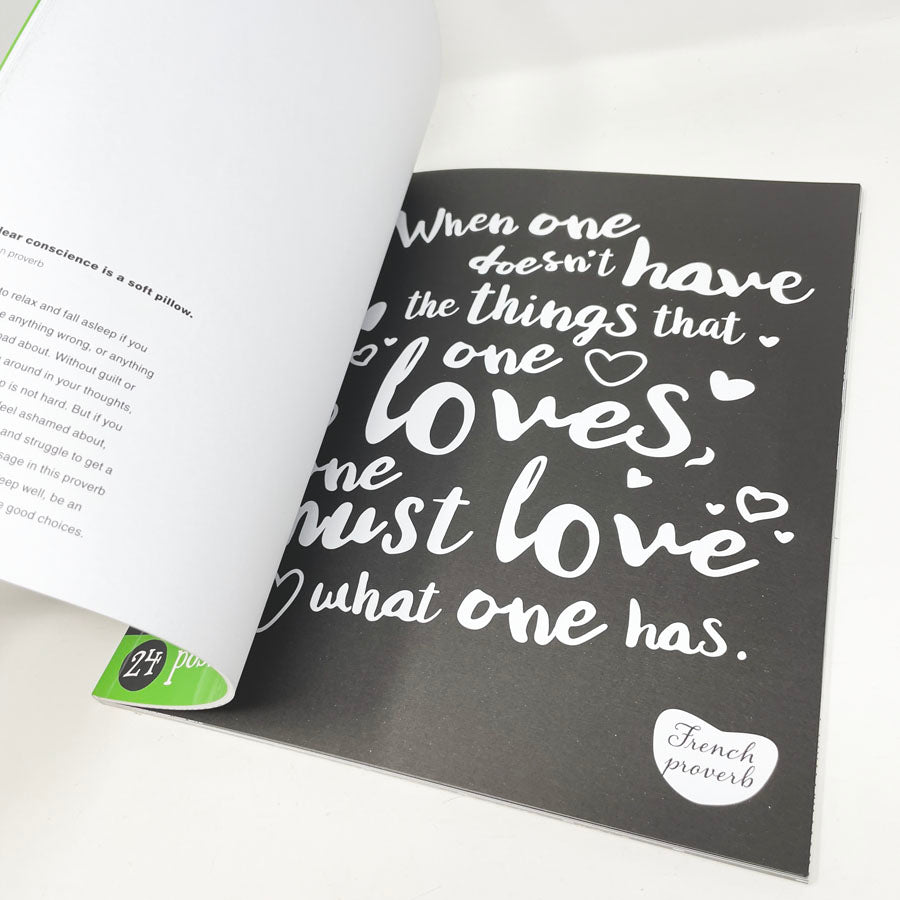 lear conscience is a soft pillow.
n proverb
to relax and fall asleep if you
e anything wrong, or anything
bad about. Without guilt or
around in your thoughts,
p is not hard. But if you
feel ashamed about,
and struggle to get a
sage in this proverb
eep well, be an
e good choices.
When one
doesn't have
the things that
one
loves,
one
must love
what one has.
French
proverb
24 pos